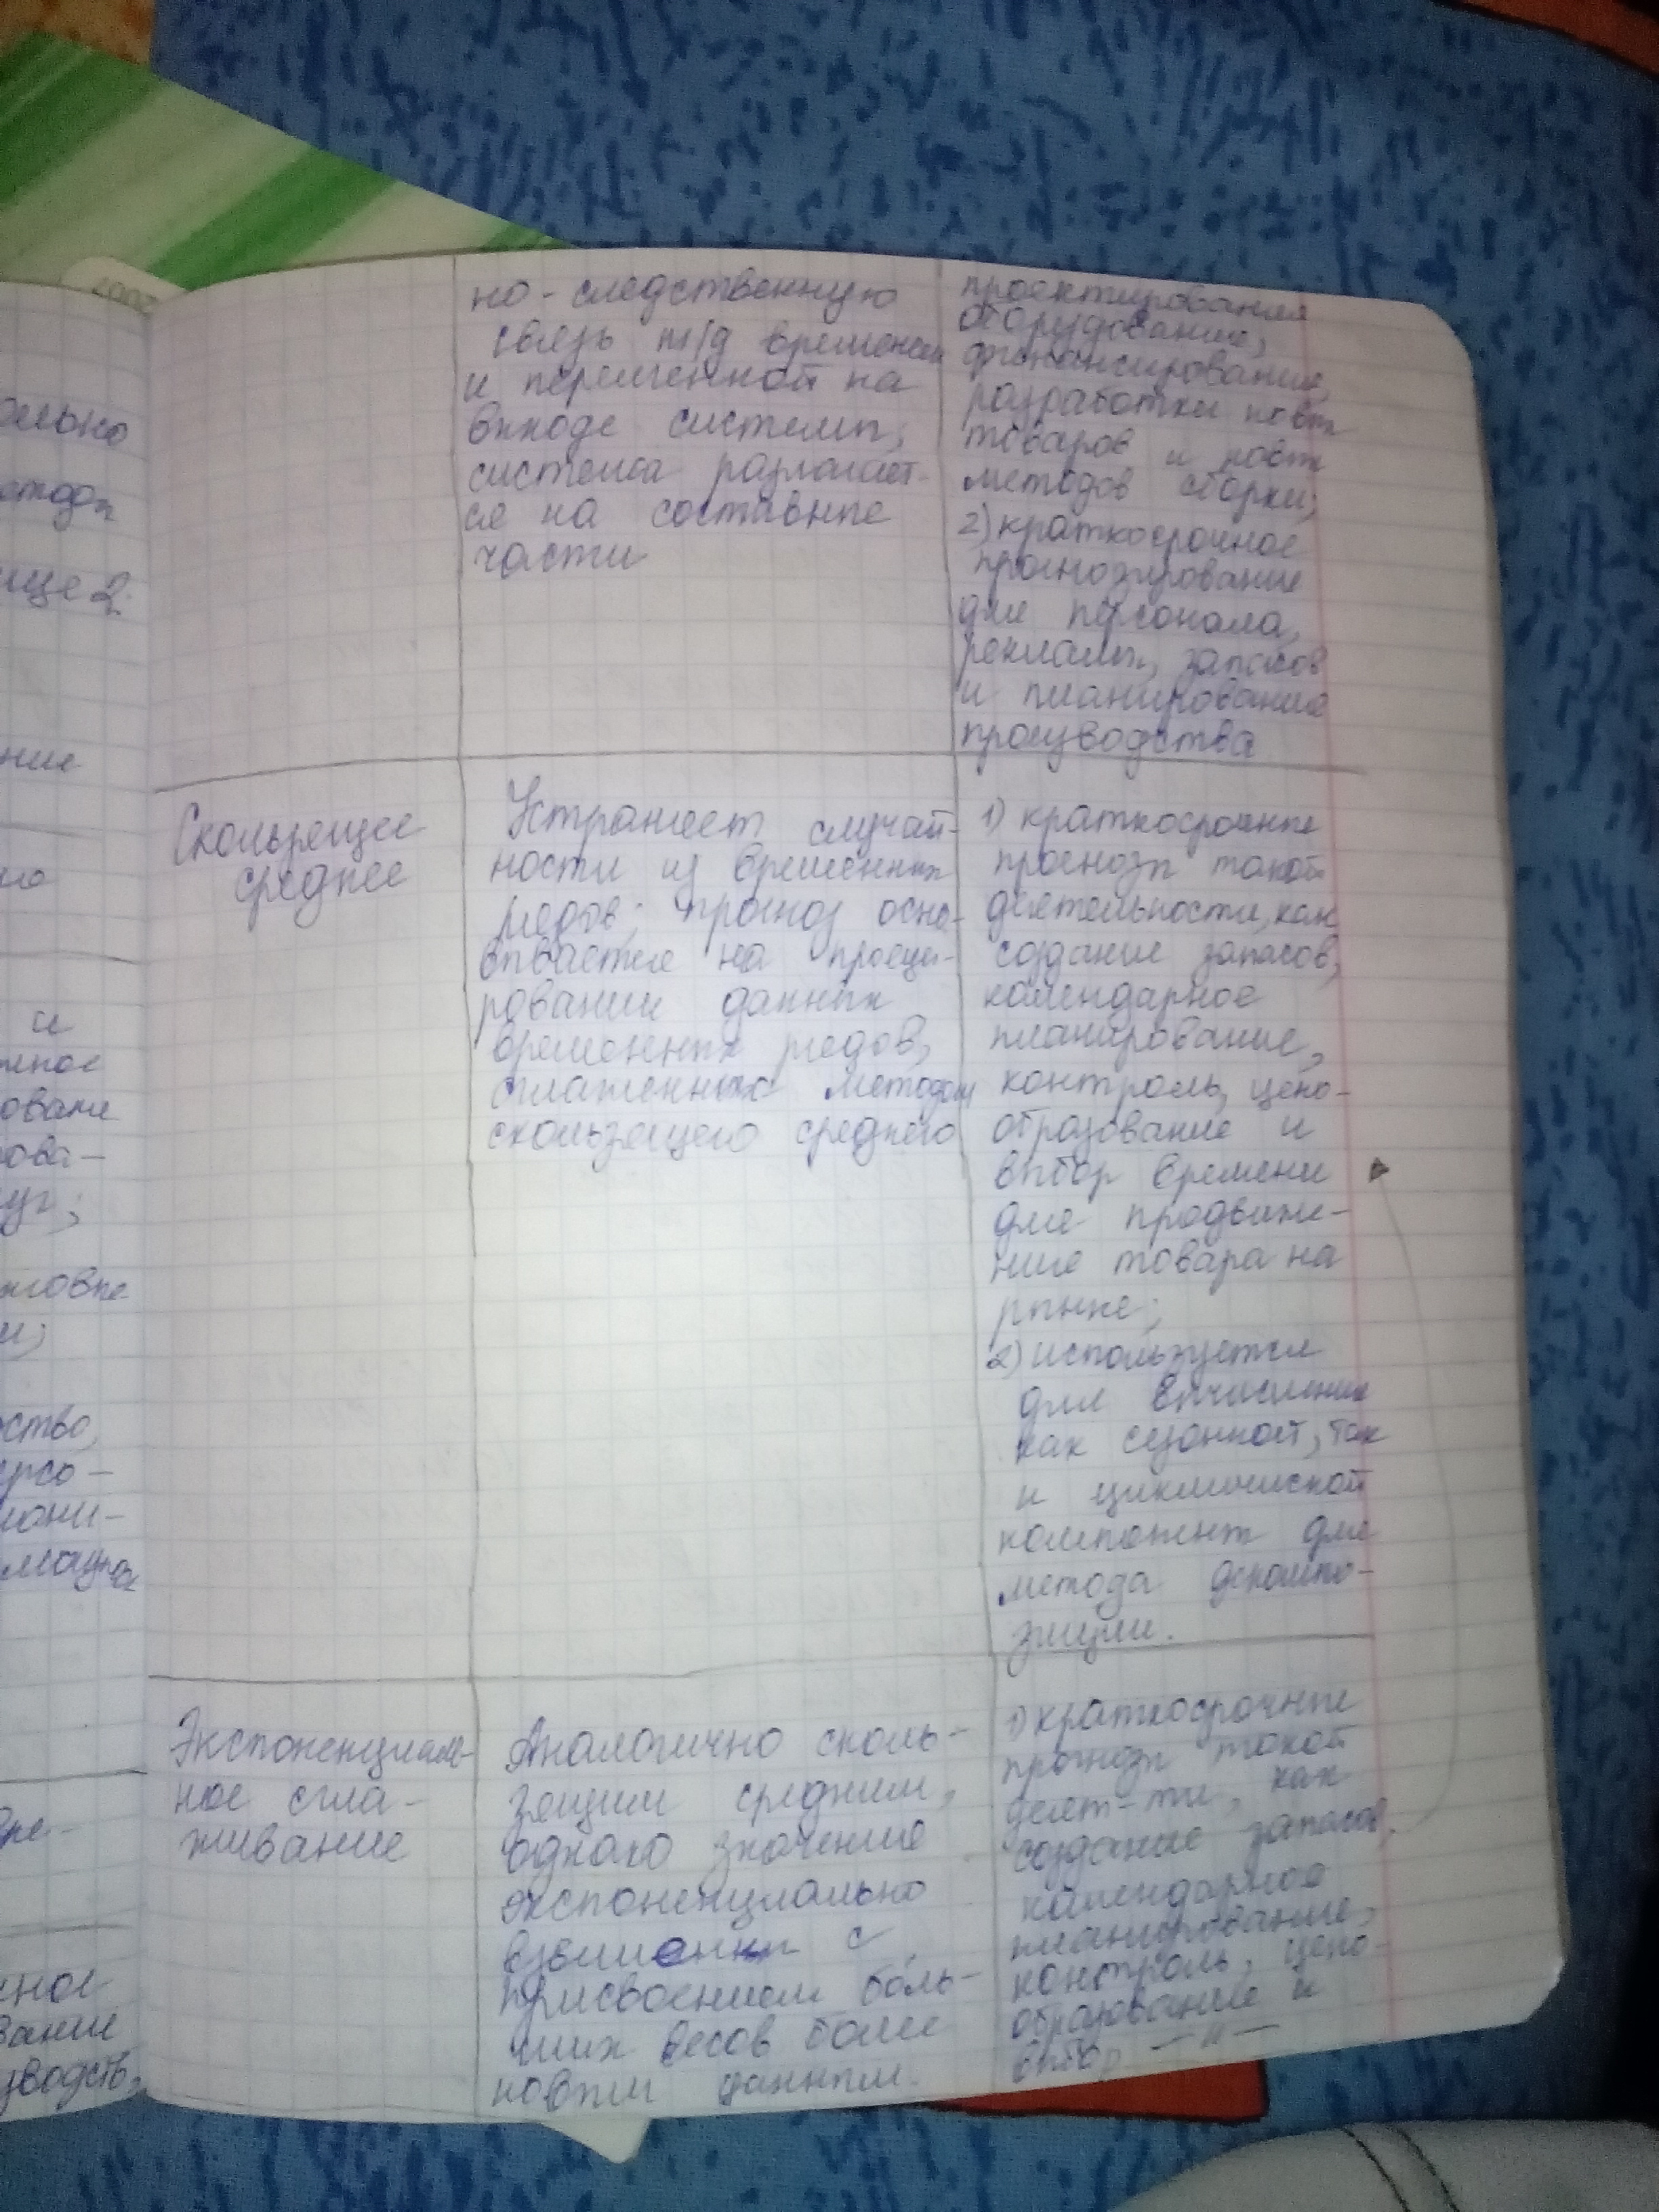 но-следственную
связь м/д временем
и переменной на
выходе системы;
система разлагает-
ся на составные
части
проектирования
оборудование,
финансирование,
разработки новых
товаров и новых
методов сборки;
2) краткосрочное
прогнозирование
для персонала,
рекламы, запасов
и планирование
производства
Скользящее
среднее
Устраняет случай-
ности из временных
рядов; прогноз осно-
вывается на проеци-
ровании данных
временных рядов,
сглаженных методом
скользящего среднего
1) краткосрочные
прогнозы такой
деятельности, как
создание запасов,
календарное
планирование,
контроль, цено-
образование и
выбор времени
для продвиже-
ние товара на
рынке;
2) используется
для вычисления
как сезонной, так
и циклической
компонент для
метода декомпо-
зиции.
Экспоненциаль-
ное сгла-
живание
Аналогично сколь-
зящим средним,
однако значение
экспоненциально
взвешенны с
присвоением боль-
ших весов более
новым данным.
1) краткосрочные
прогнозы такой
деят-ти, как
создание запасов,
календарное
планирование,
контроль, цено-
образование и
выбор — " —
ще 2.
ние
но
и
рова-
уг;
и;
ство,
ерсо-
лани-
ное
вание